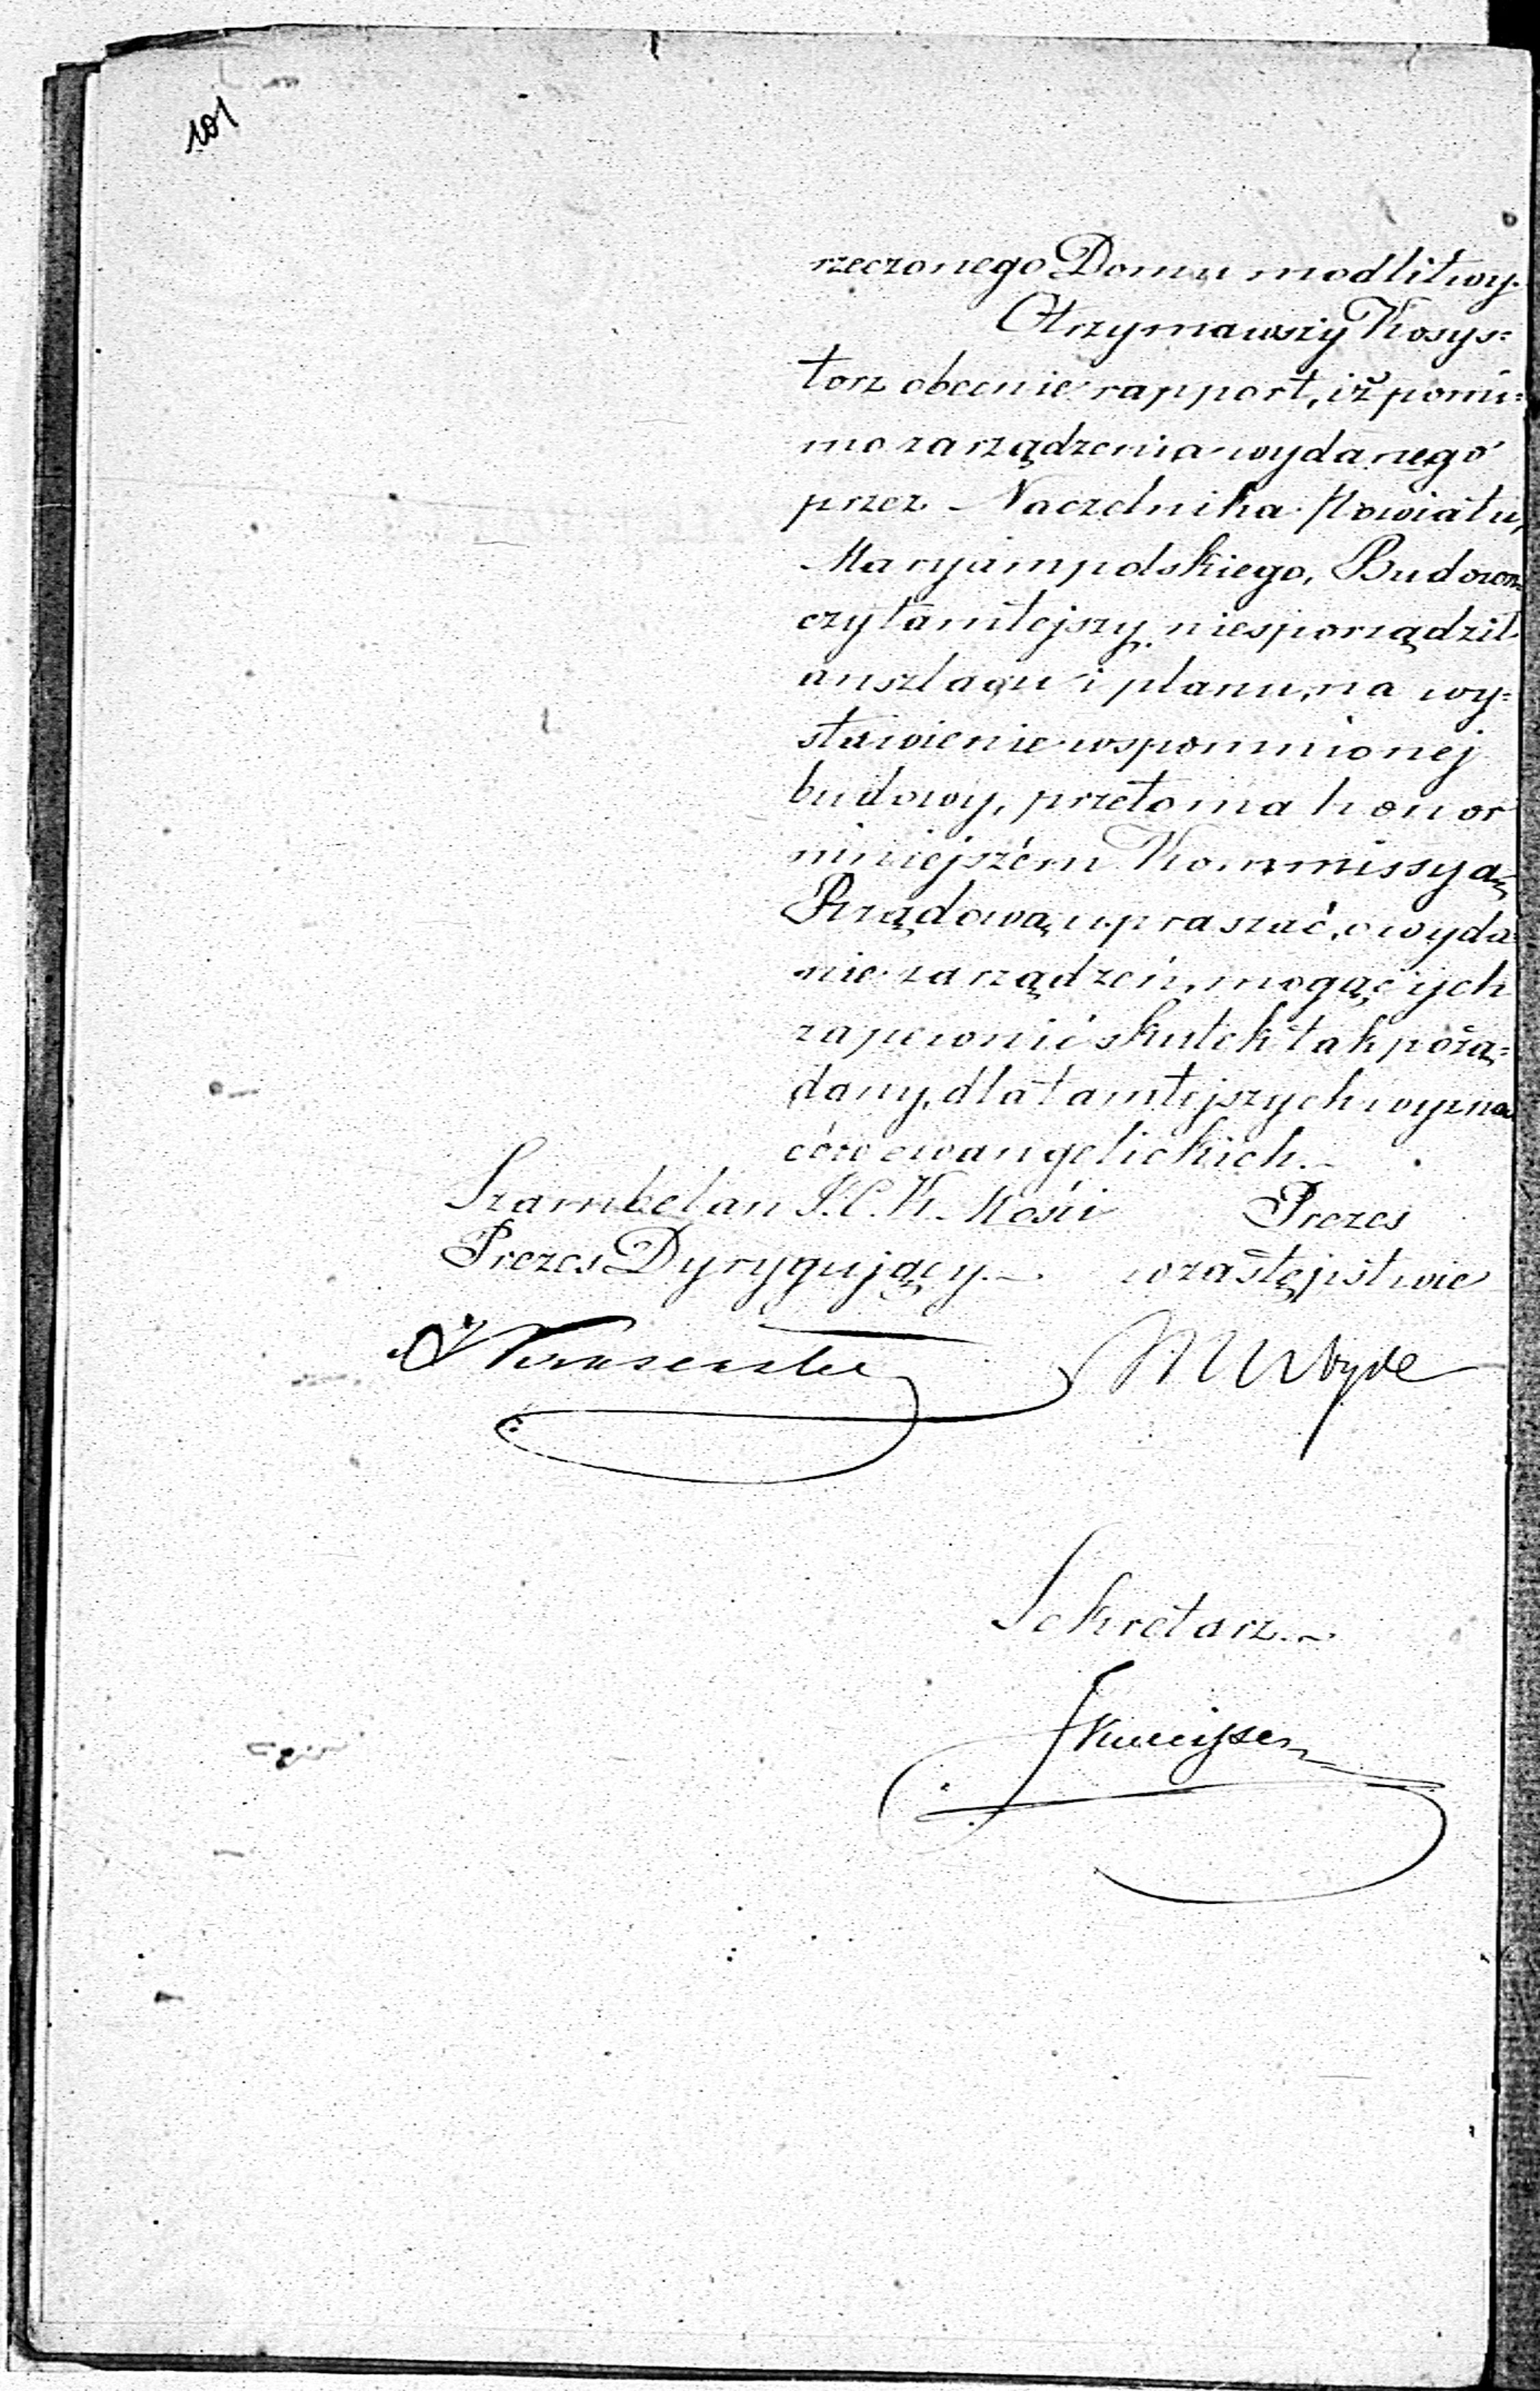 101
rzeczonego Domu modlitwy.
Otrzymawszy Kosys=
torz obecnie rapport, iż pomi=
mo zarządzenia wydanego
przez Naczelnika Powiatu,
Maryampolskiego, Budowni=
czy tamtejszy niesporządził
anszlagu i planu, na wy=
stawienie wspomnionej
budowy, przeto ma honor
niniejszém Kommissyą
Rządową upraszać, o wyda=
nie zarządzeń, mogących
zapewnić skutek tak pożą=
dany, dla tamtejszych wyzna
ców ewangelickich.
Szambelan J. C. K. Mości
Prezes Dyrygujący.
Prezes
w zastępstwie
Sekretarz.